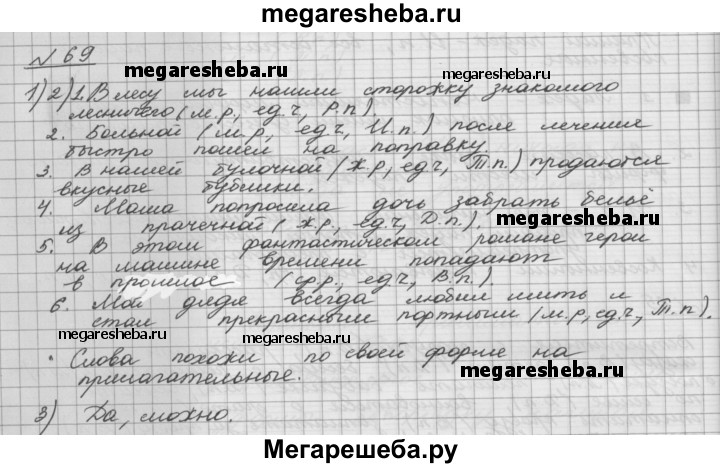 megaresheba.ru
№ 69
1) 2) 1. В лесу мы нашли сторожку знакомого
лесничего (м.р, ед.ч, Р.п).
2. Больной (м.р, ед.ч, И.п.) после лечения
быстро пошел на поправку.
3. В нашей булочной (ж.р, ед.ч, Т.п.) продаются
вкусные бублики.
4. Мама попросила дочь забрать бельё
из прачечной (ж.р, ед.ч, Д.п.).
megaresheba.ru
5. В этом фантастическом романе герои
на машине времени попадают
в прошлое (ср.р, ед.ч, В.п.).
6. Мой дядя всегда любил шить и
стал прекрасным портным (м.р, ед.ч, Т.п).
megaresheba.ru
• Слова похожи по своей форме на
прилагательные.
megaresheba.ru
3) Да, можно.
Мегарешеба.ру